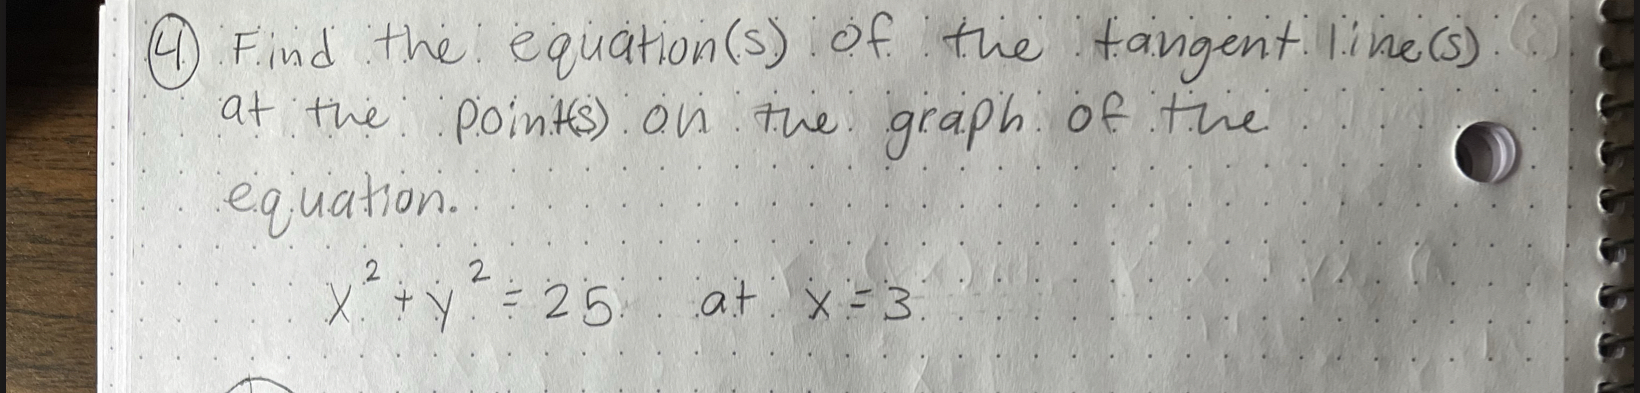 ④ Find the equation(s) of the tangent line(s)
at the point(s) on the graph of the
equation.
x² + y² = 25 at x = 3